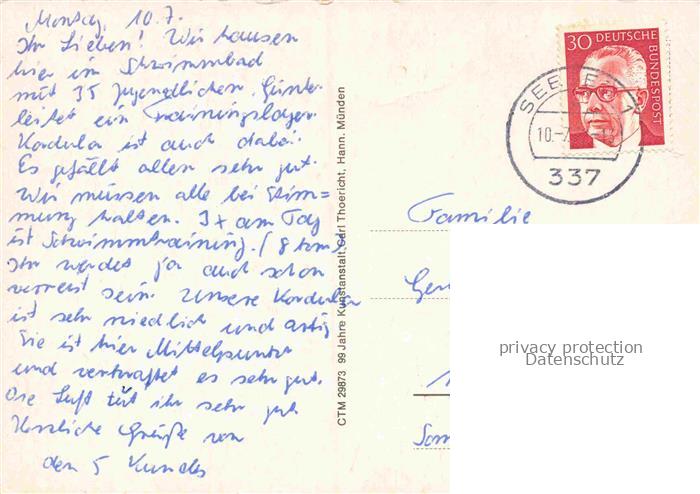 Montag, 10.7.
Ihr Lieben! Wir hausen
hier im Schwimmbad
mit 35 Jugendlichen. Günter
leitet ein Trainingslager.
Kordula ist auch dabei.
Es gefällt allen sehr gut.
Wir müssen alle bei Stim=
mung halten. 3x am Tag
ist Schwimmtraining. (8 km)
Ihr werdet ja auch schon
verreist sein. Unsere Kordula
ist sehr niedlich und artig
Sie ist hier Mittelpunkt
und verkraftet es sehr gut.
Die Luft tut ihr sehr gut
Herzliche Grüße von
den 5
CTM 29873 99 Jahre Kunstanstalt Carl Thoericht, Hann. Münden
30 DEUTSCHE
BUNDESPOST
SEESEN
10.-7.
337
Familie
privacy protection
Datenschutz